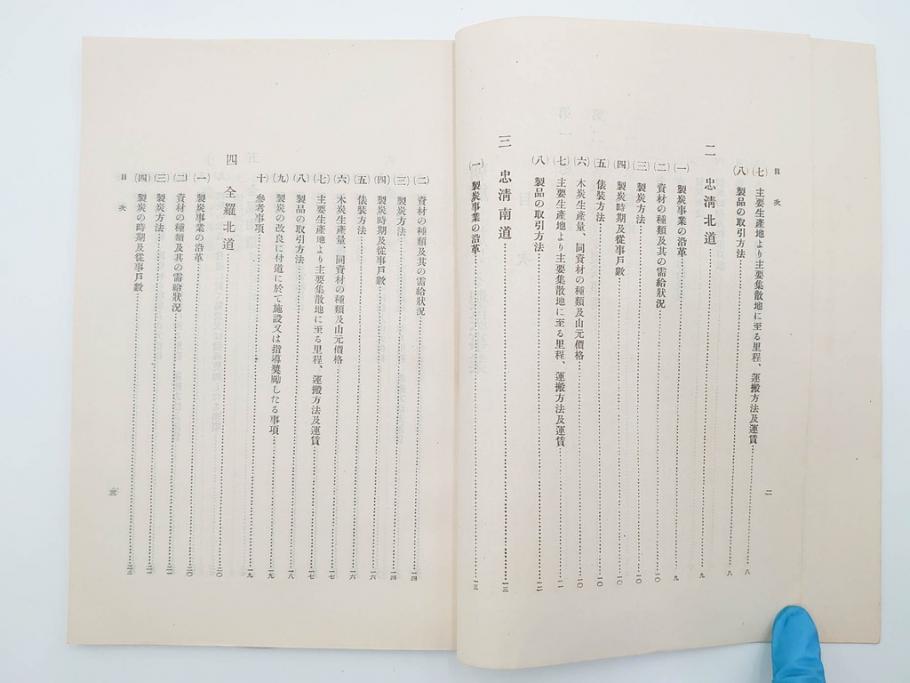 目次
二
(七) 主要生產地より主要集散地に至る里程、運搬方法及運賃 八
(八) 製品の取引方法 八
二 忠淸北道 九
(一) 製炭事業の沿革 九
(二) 資材の種類及其の需給狀況 一〇
(三) 製炭方法 一〇
(四) 製炭時期及從事戶數 一〇
(五) 俵裝方法 一〇
(六) 木炭生產量、同資材の種類及山元價格 一〇
(七) 主要生產地より主要集散地に至る里程、運搬方法及運賃 一一
(八) 製品の取引方法 一二
三 忠淸南道 一三
(一) 製炭事業の沿革 一三
(二) 資材の種類及其の需給狀況 一四
(三) 製炭方法 一四
(四) 製炭時期及從事戶數 一六
(五) 俵裝方法 一六
(六) 木炭生產量、同資材の種類及山元價格 一七
(七) 主要生產地より主要集散地に至る里程、運搬方法及運賃 一七
(八) 製品の取引方法 一八
(九) 製炭の改良に付道に於て施設又は指導奬勵したる事項 一九
十 參考事項 一九
四 全羅北道 二〇
(一) 製炭事業の沿革 二〇
(二) 資材の種類及其の需給狀況 二一
(三) 製炭方法 二一
(四) 製炭の時期及從事戶數 二三
目次
三